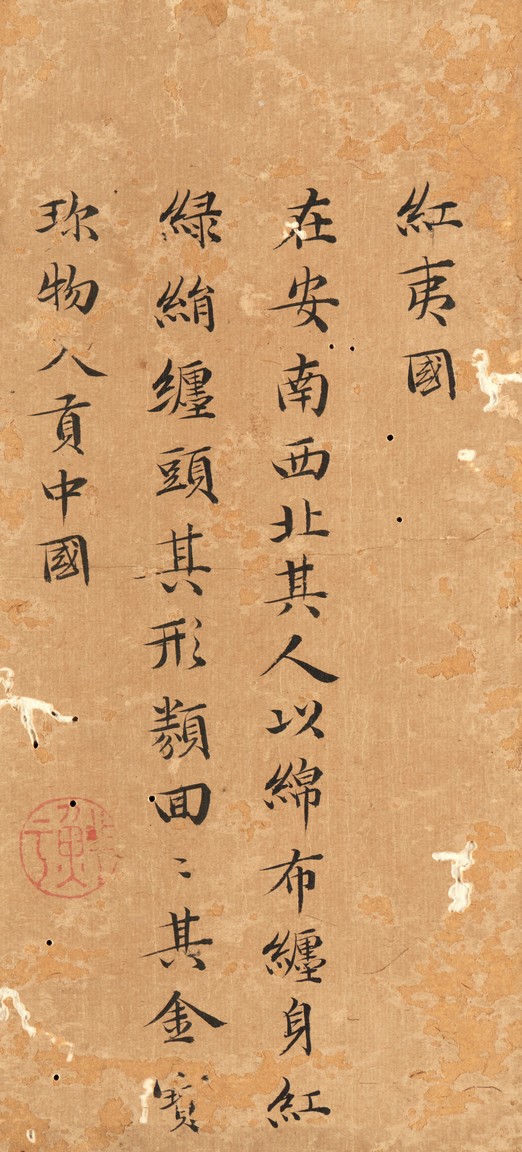 紅夷國
在安南西北其人以綿布纏身紅
綠絹纏頭其形類回〻其金寶
珎物入貢中國